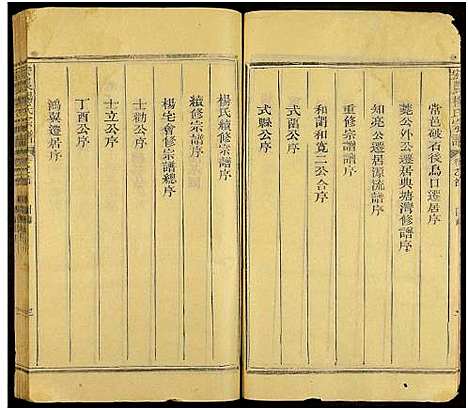 常邑破石後烏口遷居序
蕘公外公遷居典塘灣修譜序
知亮公遷居源流譜序
重修宗譜讀序
和詡和寬二公合序
式爵公序
式縣公序
楊氏續修宗譜序
續修宗譜序
楊宅會修宗譜總序
士勸公序
士立公序
丁酉公序
鴻翼遷居序